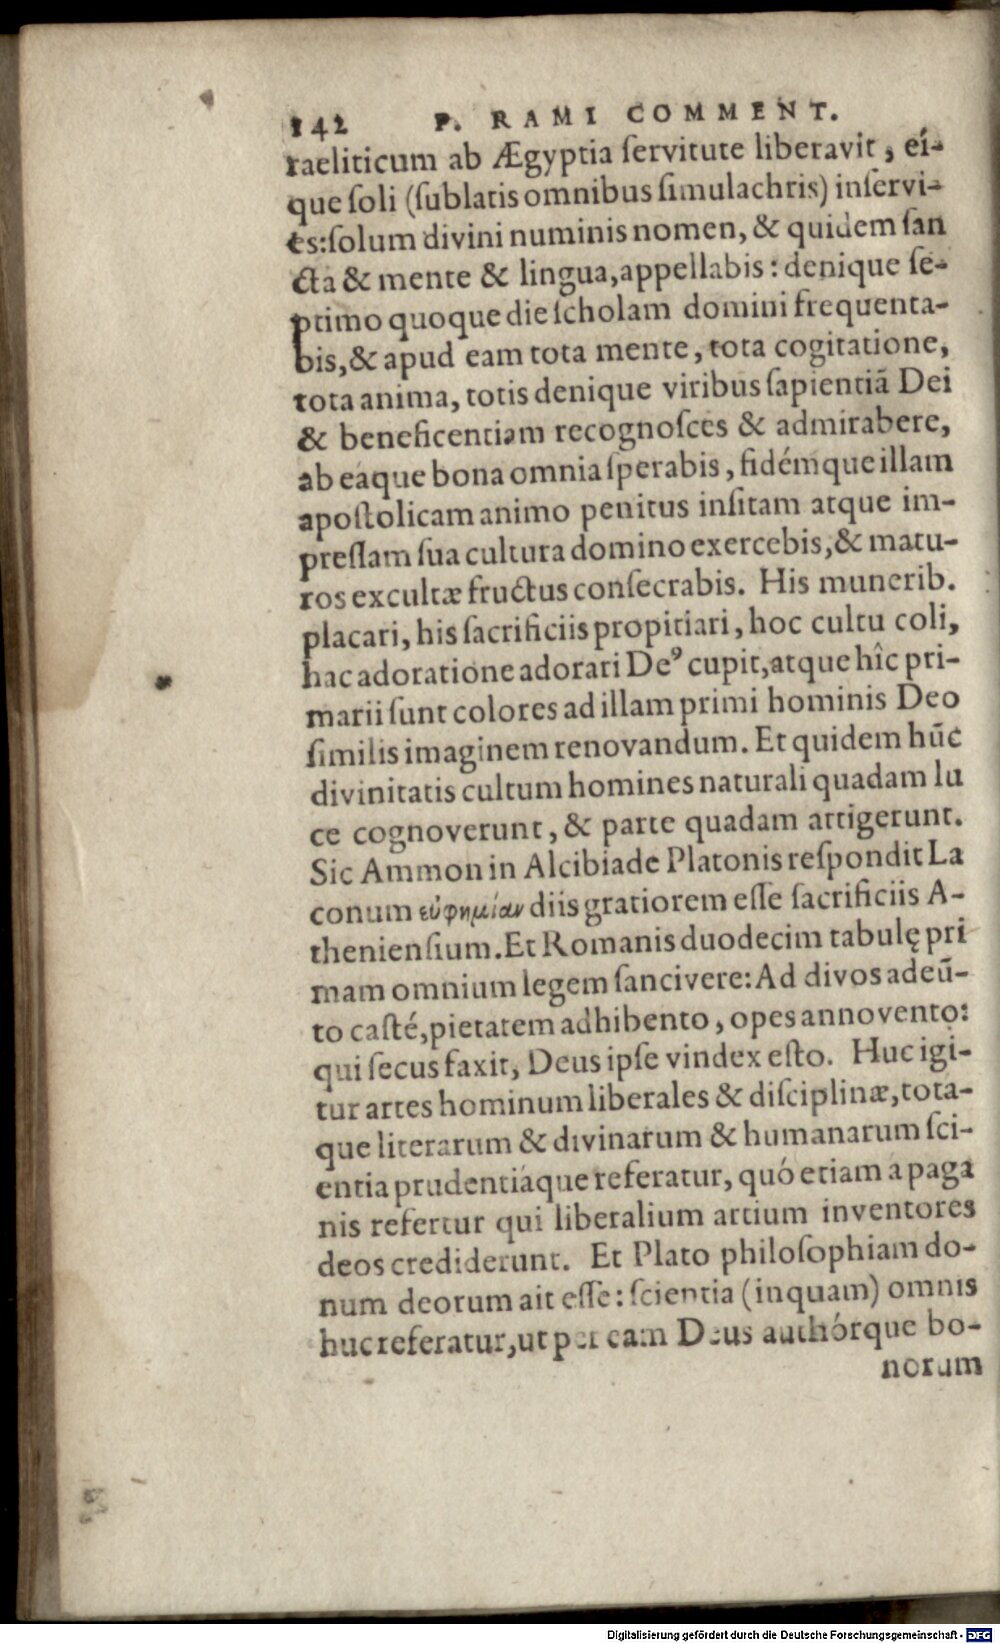 142 P. RAMI COMMENT.
raeliticum ab Ægyptia ſervitute liberavit, eí-
que ſoli (ſublatis omnibus ſimulachris) inſervi-
es:ſolum divini numinis nomen, & quidem ſan
cta & mente & lingua,appellabis: denique ſe-
ptimo quoque die ſcholam domini frequenta-
bis,& apud eam tota mente, tota cogitatione,
tota anima, totis denique viribus ſapientiã Dei
& beneficentiam recognoſces & admirabere,
ab eáque bona omnia ſperabis, fidémque illam
apoſtolicam animo penitus inſitam atque im-
preſſam ſua cultura domino exercebis,& matu-
ros excultæ fructus conſecrabis. His munerib.
placari, his ſacrificiis propitiari, hoc cultu coli,
hac adoratione adorari Deꝰ cupit,atque hîc pri-
marii ſunt colores ad illam primi hominis Deo
ſimilis imaginem renovandum. Et quidem hũc
divinitatis cultum homines naturali quadam lu
ce cognoverunt, & parte quadam attigerunt.
Sic Ammon in Alcibiade Platonis reſpondit La
conum εὐφημίαν diis gratiorem eſſe ſacrificiis A-
thenienſium. Et Romanis duodecim tabulę pri
mam omnium legem ſancivere: Ad divos adeũ-
to caſté,pietatem adhibento, opes annovento:
qui ſecus faxit, Deus ipſe vindex eſto. Huc igi-
tur artes hominum liberales & diſciplinæ, tota-
que literarum & divinarum & humanarum ſci-
entia prudentiáque referatur, quó etiam a paga
nis refertur qui liberalium artium inventores
deos crediderunt. Et Plato philoſophiam do-
num deorum ait eſſe: ſcientia (inquam) omnis
huc referatur,ut per eam Deus authórque bo-
norum
Digitalisierung gefördert durch die Deutsche Forschungsgemeinschaft - DFG